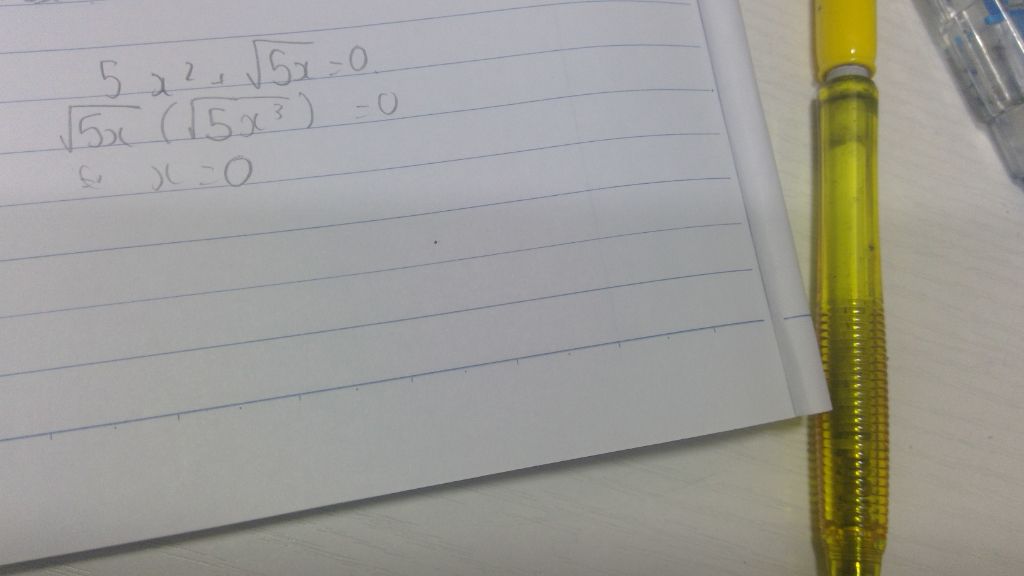 5x² + √5x = 0
√5x (√5x³) = 0
x = 0